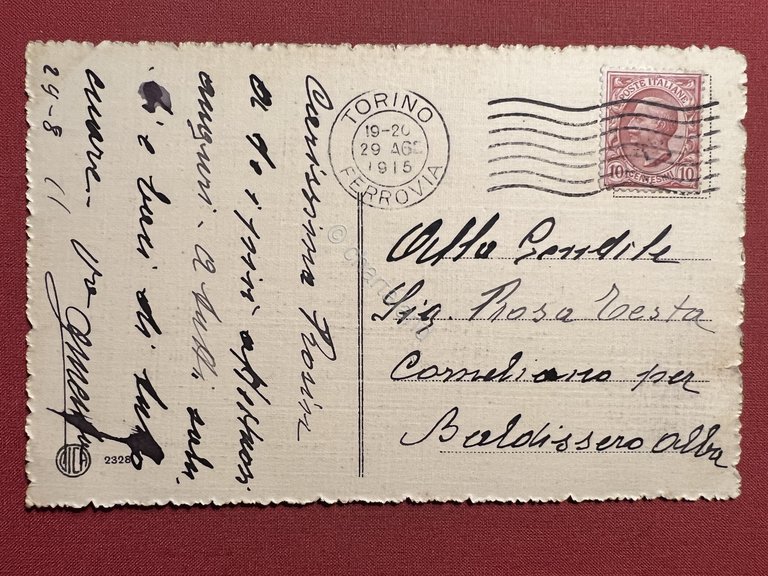 Carissima Rosin
a te i più affettuosi
auguri. A tutti saluti
e baci di tutto
cuore. Vro
29-8
2328
TORINO
19-20
29 AGO
1915
FERROVIA
POSTE ITALIANE
10 CENTESIMI 10
Alla Gentile
Sig. Rosa Testa
Corneliano per
Baldissero Alba